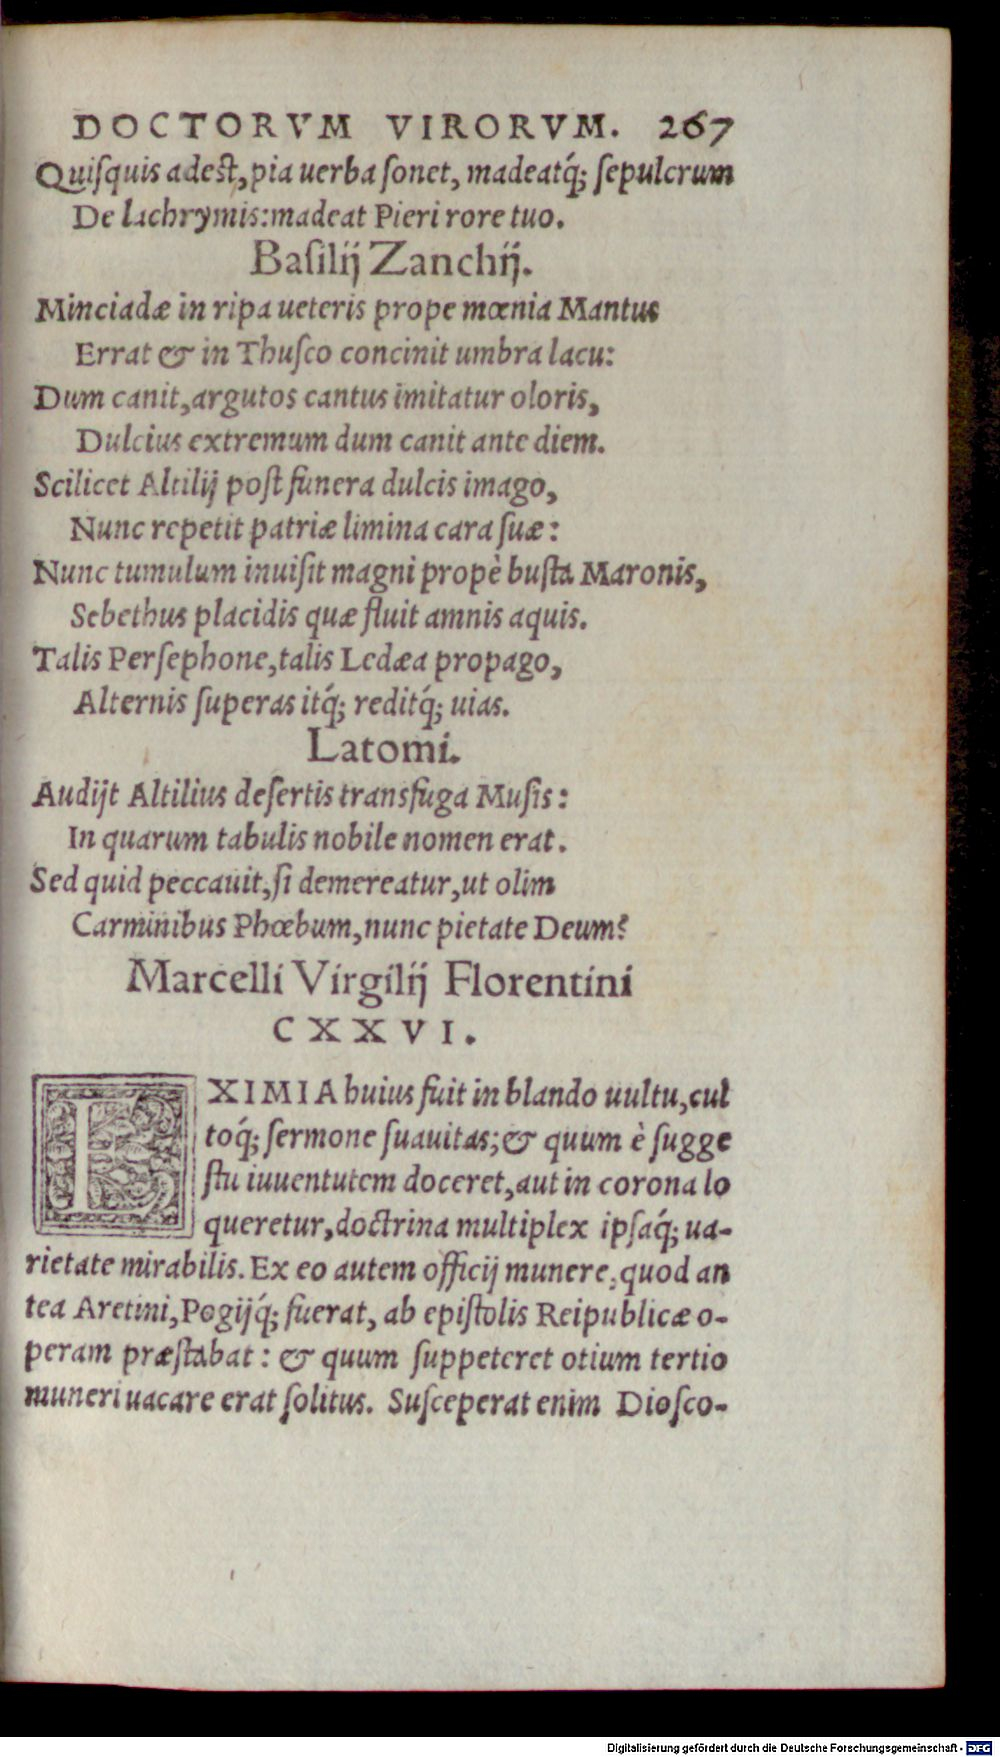 DOCTORVM VIRORVM. 267
Quiſquis adest, pia uerba ſonet, madeatq́; ſepulcrum
De lachrymis: madeat Pieri rore tuo.
Baſilij Zanchij.
Minciadæ in ripa ueteris prope mœnia Mantus
Errat & in Thuſco concinit umbra lacu:
Dum canit, argutos cantus imitatur oloris,
Dulcius extremum dum canit ante diem.
Scilicet Altilij poſt funera dulcis imago,
Nunc repetit patriæ limina cara ſuæ:
Nunc tumulum inuiſit magni propè buſta Maronis,
Sebethus placidis quæ fluit amnis aquis.
Talis Perſephone, talis Ledæa propago,
Alternis ſuperas itq́; reditq́; uias.
Latomi.
Audijt Altilius deſertis transfuga Muſis:
In quarum tabulis nobile nomen erat.
Sed quid peccauit, ſi demereatur, ut olim
Carminibus Phœbum, nunc pietate Deum?
Marcelli Virgilij Florentini
CXXVI.
EXIMIA huius fuit in blando uultu, cul
toq́; ſermone ſuauitas; & quum è ſugge
ſtu iuuentutem doceret, aut in corona lo
queretur, doctrina multiplex ipſaq́; ua-
rietate mirabilis. Ex eo autem officij munere, quod an
tea Aretini, Pogijq́; fuerat, ab epiſtolis Reipublicæ o-
peram præſtabat: & quum ſuppeteret otium tertio
muneri uacare erat ſolitus. Suſceperat enim Dioſco-
Digitalisierung gefördert durch die Deutsche Forschungsgemeinschaft - DFG